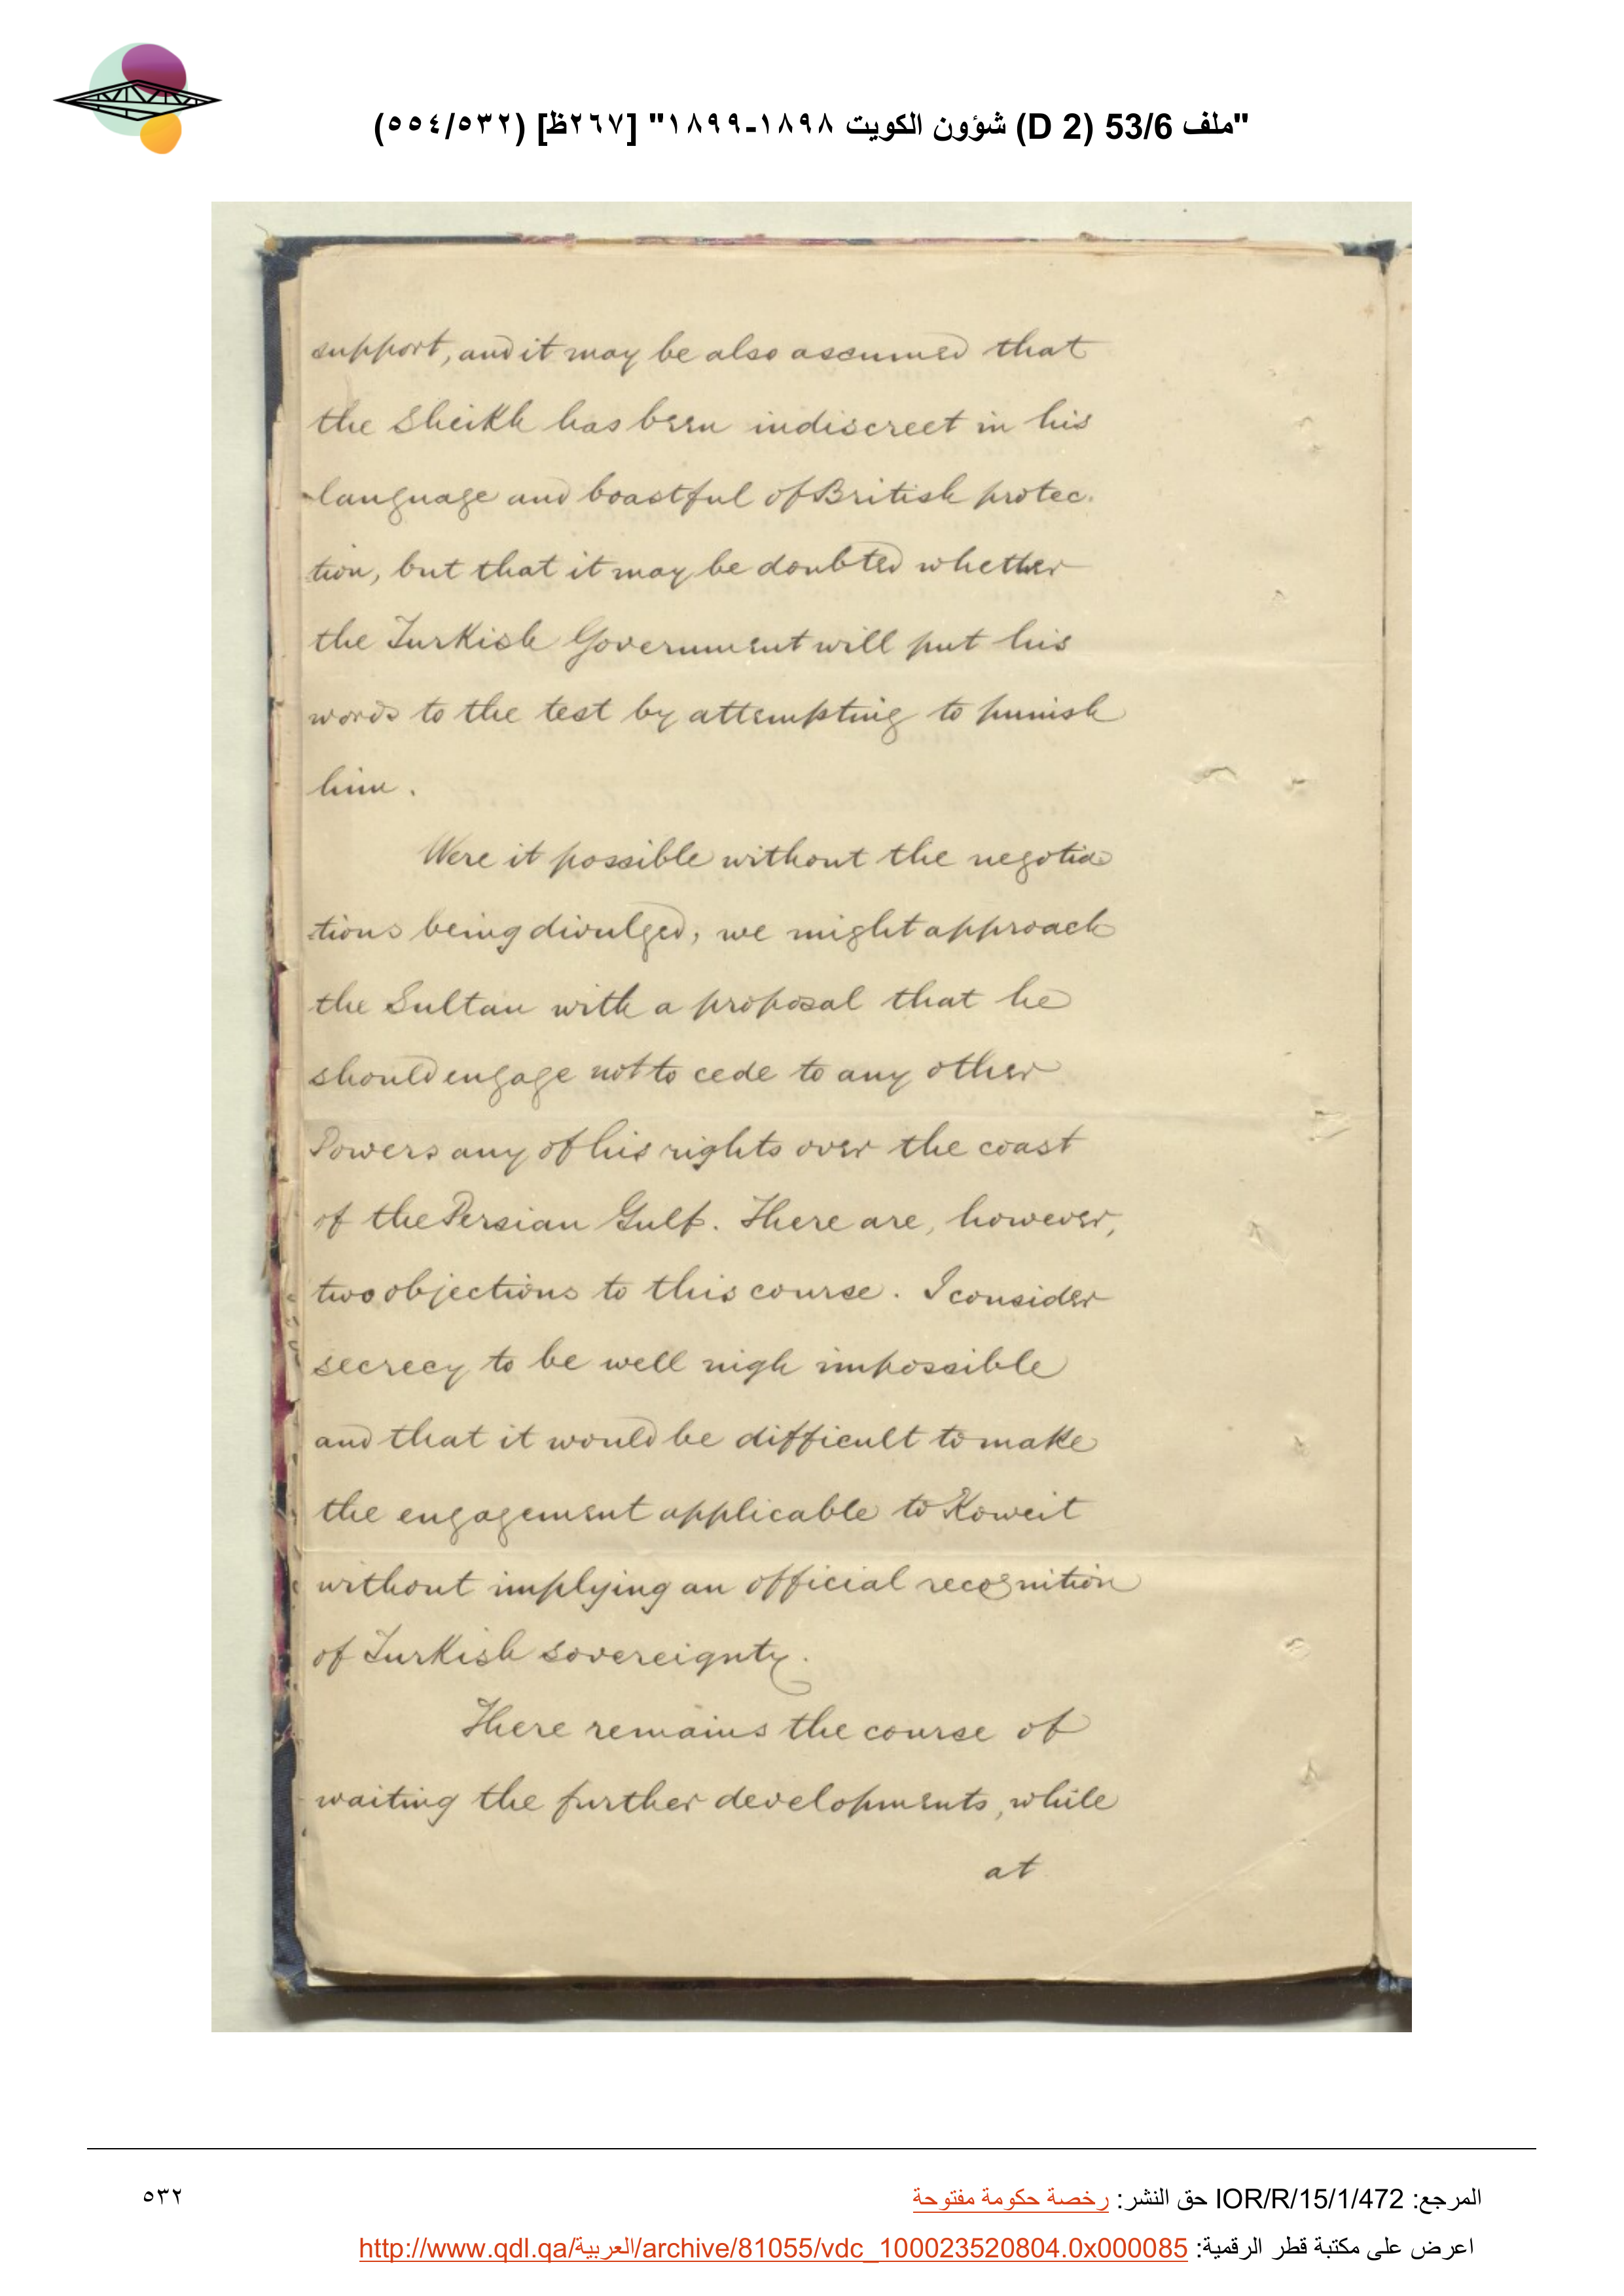 "ملف 53/6 (D 2) شؤون الكويت ١٨٩٨-١٨٩٩" [٢٦٧ظ] (٥٣٢/٥٥٤)
support, and it may be also assumed that
the Sheikh has been indiscreet in his
language and boastful of British protec-
tion, but that it may be doubted whether
the Turkish Government will put his
words to the test by attempting to punish
him.
Were it possible without the negotia
tions being divulged, we might approach
the Sultan with a proposal that he
should engage not to cede to any other
Powers any of his rights over the coast
of the Persian Gulf. There are, however,
two objections to this course. I consider
secrecy to be well nigh impossible
and that it would be difficult to make
the engagement applicable to Koweit
without implying an official recognition
of Turkish sovereignty.
There remains the course of
waiting the further developments, while
at
المرجع: IOR/R/15/1/472 حق النشر: رخصة حكومة مفتوحة
٥٣٢
اعرض على مكتبة قطر الرقمية: http://www.qdl.qa/العربية/archive/81055/vdc_100023520804.0x000085